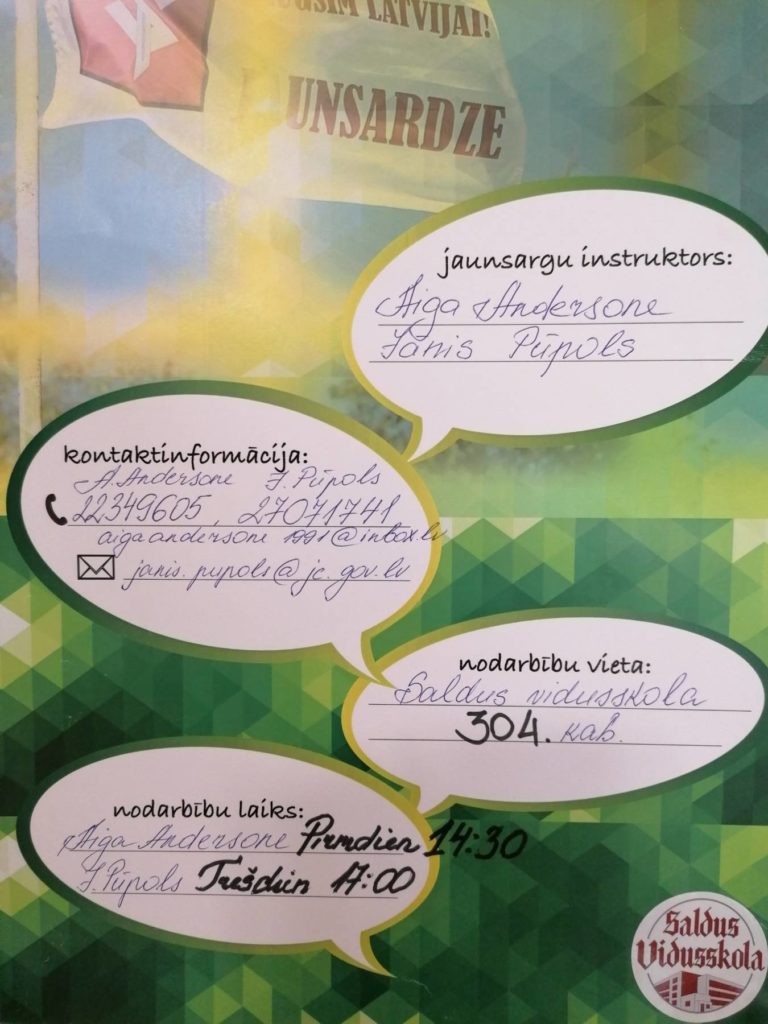 UGSIM LATVIJAI!
UNSARDZE
jaunsargu instruktors:
Aiga Andersone
Jānis Pūpols
kontaktinformācija:
A. Andersone J. Pūpols
22349605, 27071741
aigaandersone1991@inbox.lv
janis.pupols@jc.gov.lv
nodarbību vieta:
Saldus vidusskola
304. kab.
nodarbību laiks:
Aiga Andersone Pirmdien 14:30
J. Pūpols Trešdien 17:00
Saldus
Vidusskola